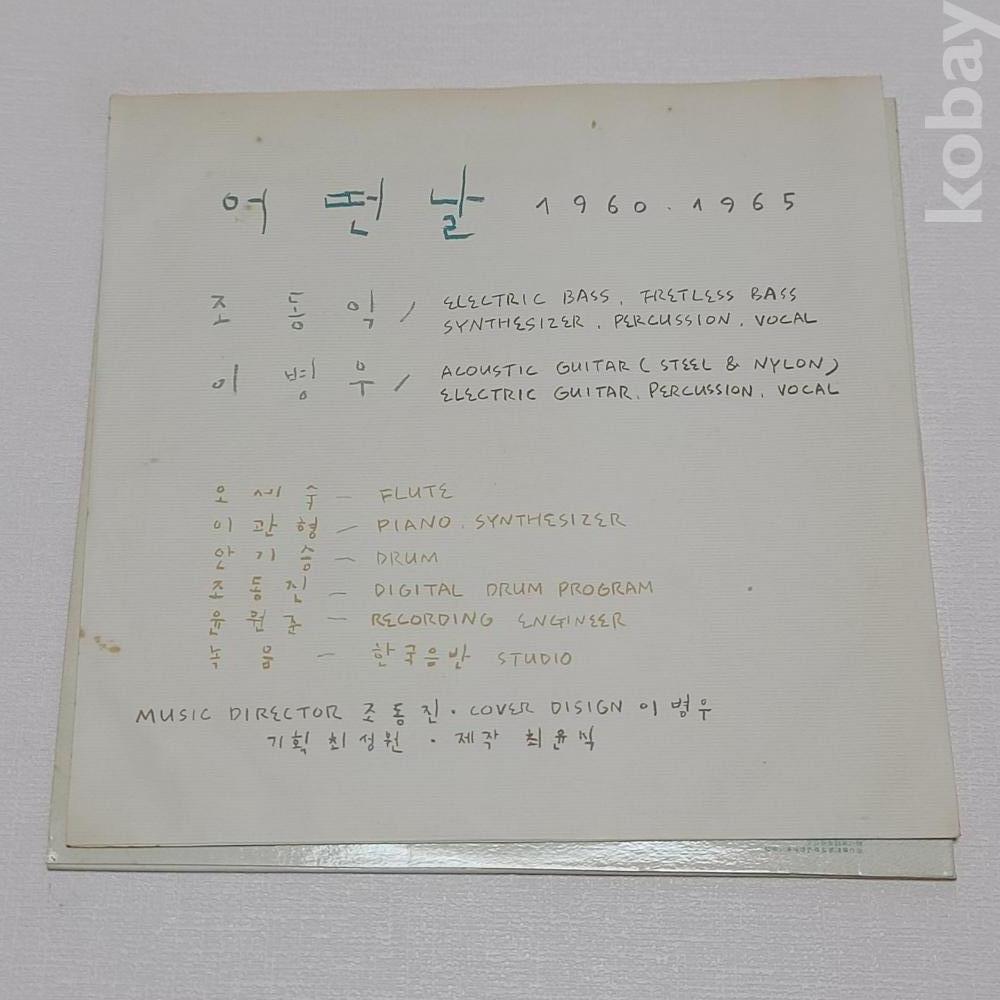 kobay
어 떤 날 1960.1965
조 동 익 / ELECTRIC BASS. FRETLESS BASS
SYNTHESIZER. PERCUSSION. VOCAL
이 병 우 / ACOUSTIC GUITAR (STEEL & NYLON)
ELECTRIC GUITAR. PERCUSSION. VOCAL
오 세 숙 - FLUTE
이 관 형 - PIANO. SYNTHESIZER
안 기 승 - DRUM
조 동 진 - DIGITAL DRUM PROGRAM
윤 원 준 - RECORDING ENGINEER
녹 음 - 한국음반 STUDIO
MUSIC DIRECTOR 조 동 진 · COVER DISIGN 이 병 우
기획 최 성 원 · 제작 최 윤 식